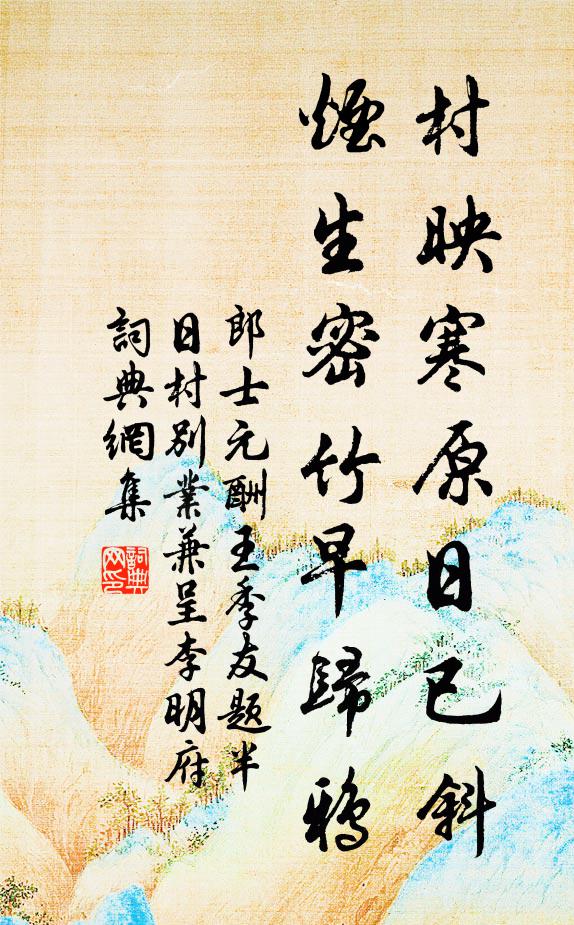 村映寒原日已斜
煙生密竹早歸鴉
郎士元酬王季友題半
日村別業兼呈李明府
詞典網集
詞典
网印